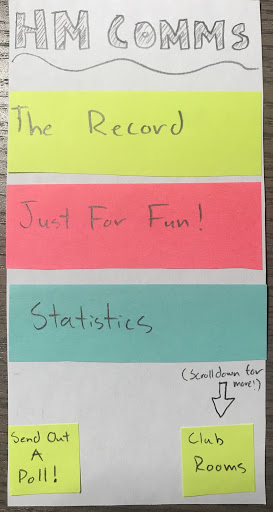 HM COMMS
The Record
Just For Fun!
Statistics
(Scroll down for
more!)
Send Out
A
Poll!
Club
Rooms